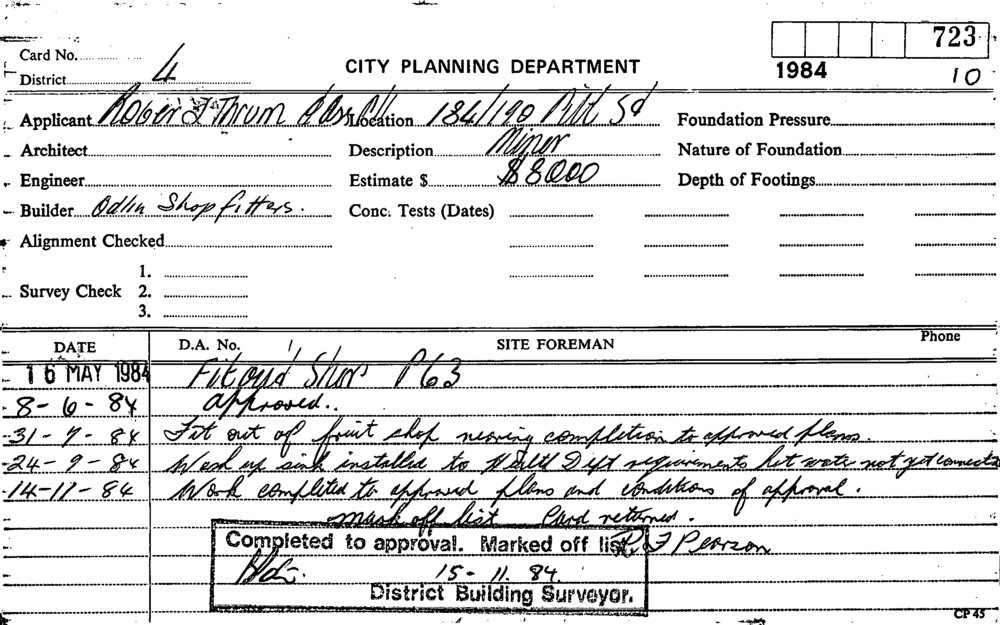 723
Card No.
District 4
CITY PLANNING DEPARTMENT
1984 10
Applicant Roger J Thrum Location 184/190 Pitt St
Foundation Pressure
Architect
Description Minor
Nature of Foundation
Engineer
Estimate $ $8000
Depth of Footings
Builder Odlin Shopfitters.
Conc. Tests (Dates)
Alignment Checked
1.
Survey Check 2.
3.
DATE D.A. No. SITE FOREMAN Phone
16 MAY 1984 Fitout Shop P63
8-6-84 approved..
31-7-84 Fit out of fruit shop nearing completion to approved plans.
24-9-84 Wash up sink installed to Health Dept requirements hot water not yet connected
14-11-84 Work completed to approved plans and conditions of approval.
mark off list Card returned.
Completed to approval. Marked off list. F Pearson
15-11.84.
District Building Surveyor.
CP 45